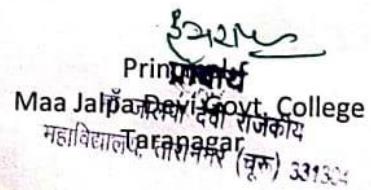 Principal
प्राचार्य
Maa Jalpa Devi Govt. College
माँ जालपा देवी राजकीय
Taranagar
महाविद्यालय, तारानगर (चूरू) 331304